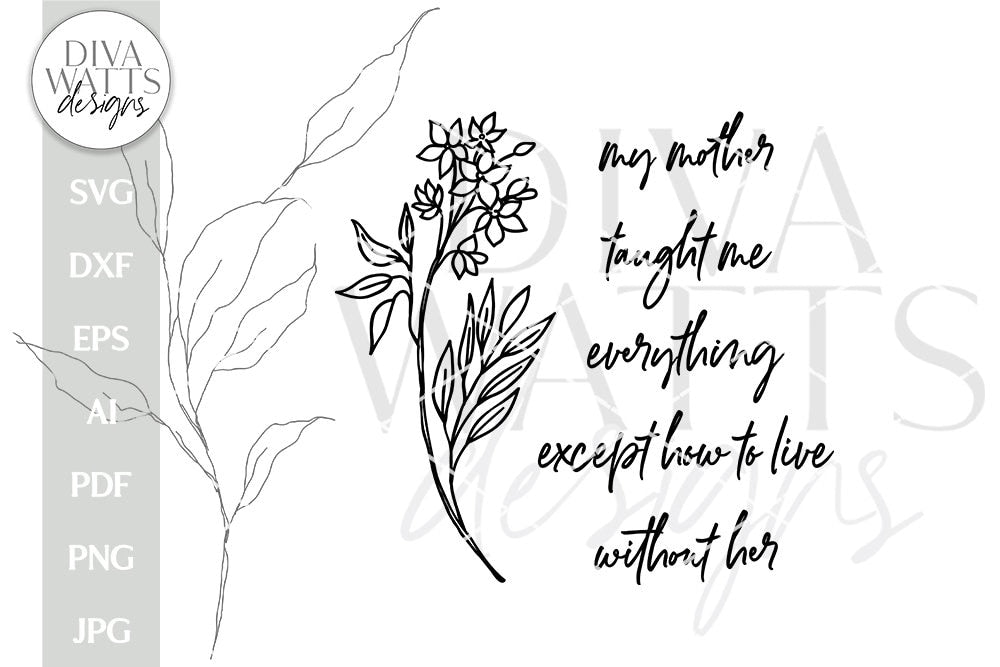 DIVA
WATTS
designs
SVG
DXF
EPS
AI
PDF
PNG
JPG
my mother
taught me
everything
except how to live
without her
DIVA
WATTS
designs